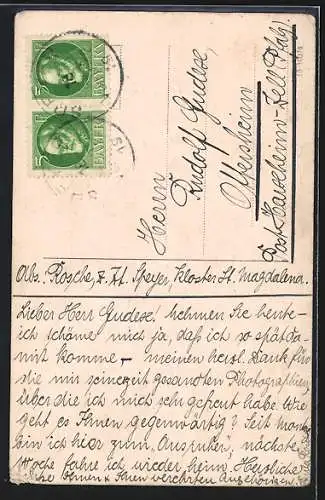 BAYERN
5
BAYERN
5
Herrn
Rudolf Gudese,
Offersheim
Post Harxheim-Zell (Pfalz).
Abs. Rosche, z. Zt. Speyer, Kloster St. Magdalena.
Lieber Herr Gudese! Nehmen Sie heute –
ich schäme mich ja, daß ich so spät da-
mit komme – meinen herzl. Dank für
die mir seinerzeit gesandten Photographien,
über die ich mich sehr gefreut habe. Wie
geht es Ihnen gegenwärtig? Seit
bin ich hier zum "Ausruhen", nächste
Woche fahre ich wieder heim. Herzliche
Ihnen & Ihren verehrten Angehörigen